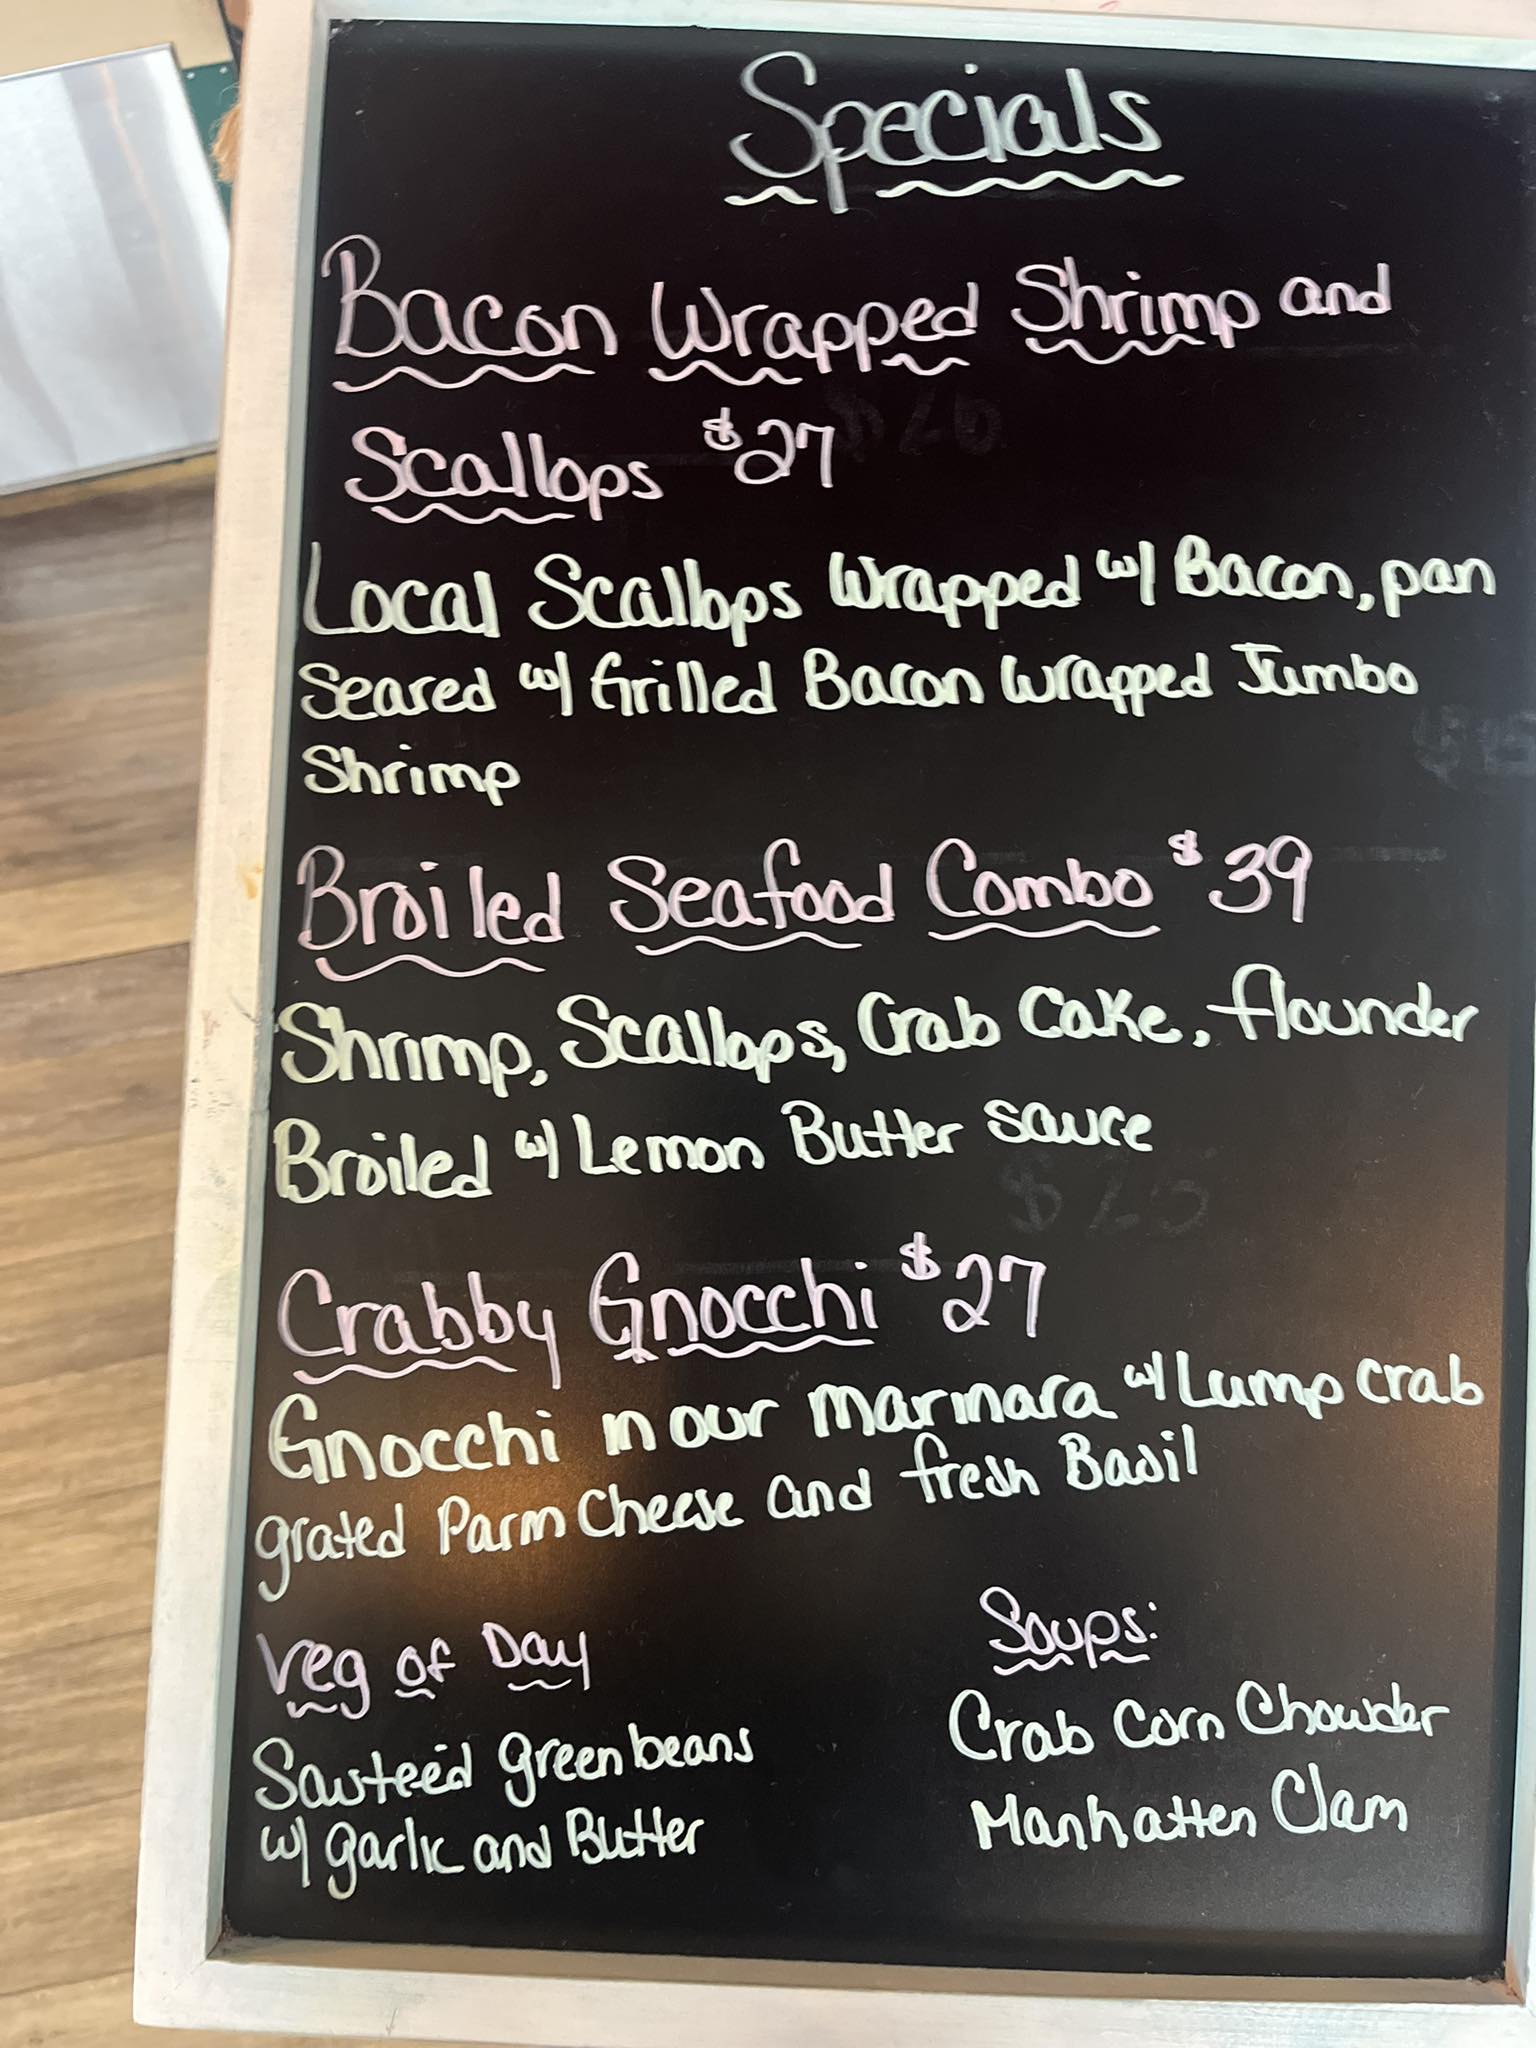 Specials
Bacon Wrapped Shrimp and
Scallops $27
Local Scallops Wrapped w/ Bacon, pan
Seared w/ Grilled Bacon Wrapped Jumbo
Shrimp
Broiled Seafood Combo $39
Shrimp, Scallops, Crab Cake, flounder
Broiled w/ Lemon Butter sauce
Crabby Gnocchi $27
Gnocchi in our marinara w/ Lump crab
grated Parm Cheese and fresh Basil
Veg of Day
Sauteed green beans
w/ garlic and Butter
Soups:
Crab Corn Chowder
Manhatten Clam